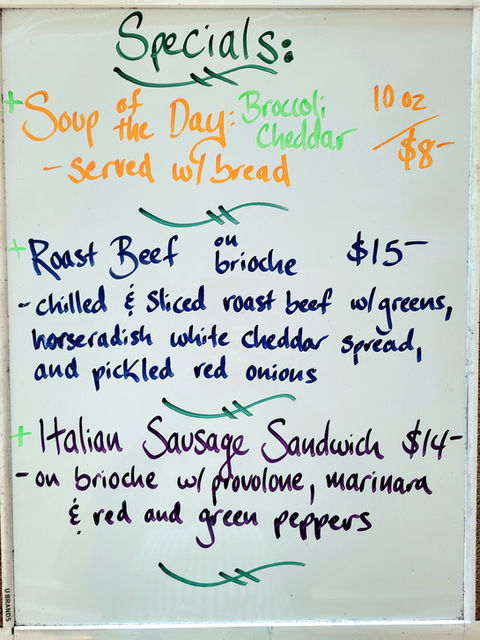 Specials:
+ Soup of the Day: Broccoli Cheddar 10 oz / $8-
- served w/ bread
+ Roast Beef on brioche $15-
- chilled & sliced roast beef w/ greens,
horseradish white cheddar spread,
and pickled red onions
+ Italian Sausage Sandwich $14-
- on brioche w/ provolone, marinara
& red and green peppers
U BRANDS